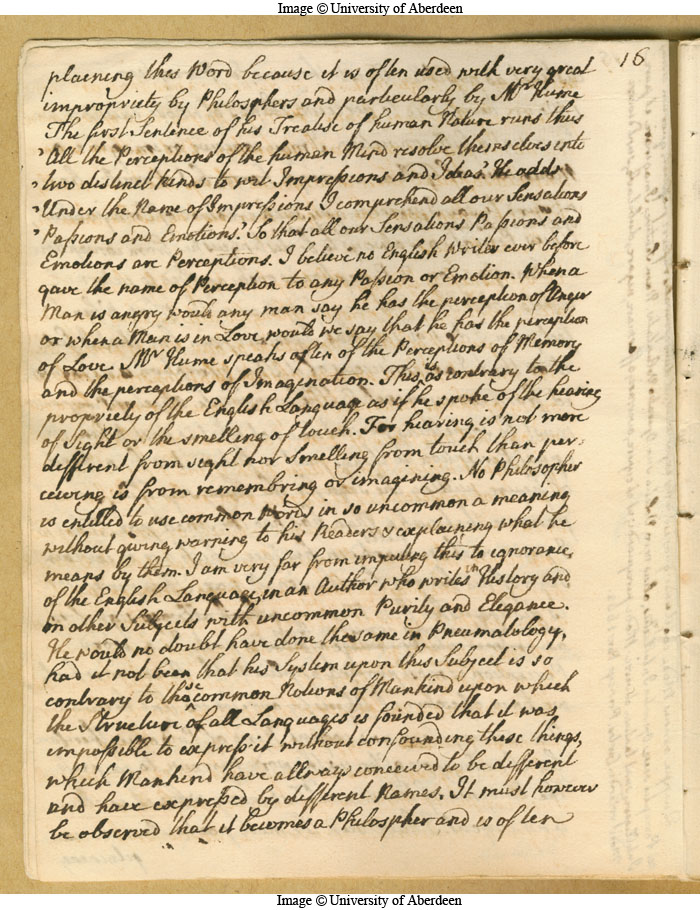 Image © University of Aberdeen
16
plaining this Word because it is often used with very great
impropriety by Philosphers and particularly by Mr Hume
The first Sentence of his Treatise of human Nature runs thus
' All the Perceptions of the human Mind resolve themselves into
' two distinct kinds to wit Impressions and Ideas.' He adds
' Under the Name of Impressions I comprehend all our Sensations
' Passions and Emotions.' So that all our Sensations Passions and
Emotions are Perceptions. I believe no English Writer ever before
gave the name of Perception to any Passion or Emotion. When a
Man is angry would any man say he has the perception of Anger
or when a Man is in Love would we say that he has the perception
of Love. Mr Hume speaks often of the Perceptions of Memory
and the perceptions of Imagination. This is as contrary to the
propriety of the English Language as if he spoke of the hearing
of Sight or the smelling of touch. For hearing is not more
different from sight nor Smelling from touch than per=
ceiving is from remembring or imagining. No Philosopher
is entitled to use common words in so uncommon a meaning
without giving warning to his Readers & explaining what he
means by them. I am very far from imputing this to ignorance
of the English Language, in an Author who writes in History and
in other Subjects with uncommon Purity and Elegance.
He would no doubt have done the same in Pneumatology,
had it not been that his System upon this Subject is so
contrary to those common Notions of Mankind upon which
the Structure of all Languages is founded that it was
impossible to express it without confounding these things,
which Mankind have allways conceived to be different
and have expressed by different Names. It must however
be observed that it becomes a Philospher and is often
Image © University of Aberdeen